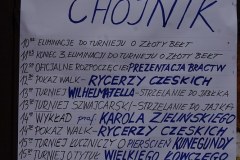 CHOJNIK
ELIMINACJE DO TURNIEJU O ZŁOTY BEŁT
KONIEC ELIMINACJI DO TURNIEJU O ZŁOTY BEŁT
12⁰⁰ OFICJALNE ROZPOCZĘCIE PREZENTACJA BRACTW
POKAZ WALK - RYCERZY CZESKICH
13 TURNIEJ WILHELMA TELLA - STRZELANIE DO JABŁKA
TURNIEJ SZWAJCARSKI - STRZELANIE DO JAJKA
14 WYKŁAD prof KAROLA ZIELIŃSKIEGO
14 POKAZ WALK - RYCERZY CZESKICH
15 TURNIEJ ŁUCZNICZY O PIERŚCIEŃ KUNEGUNDY
TURNIEJ O TYTUŁ WIELKIEGO ŁOWCZEGO